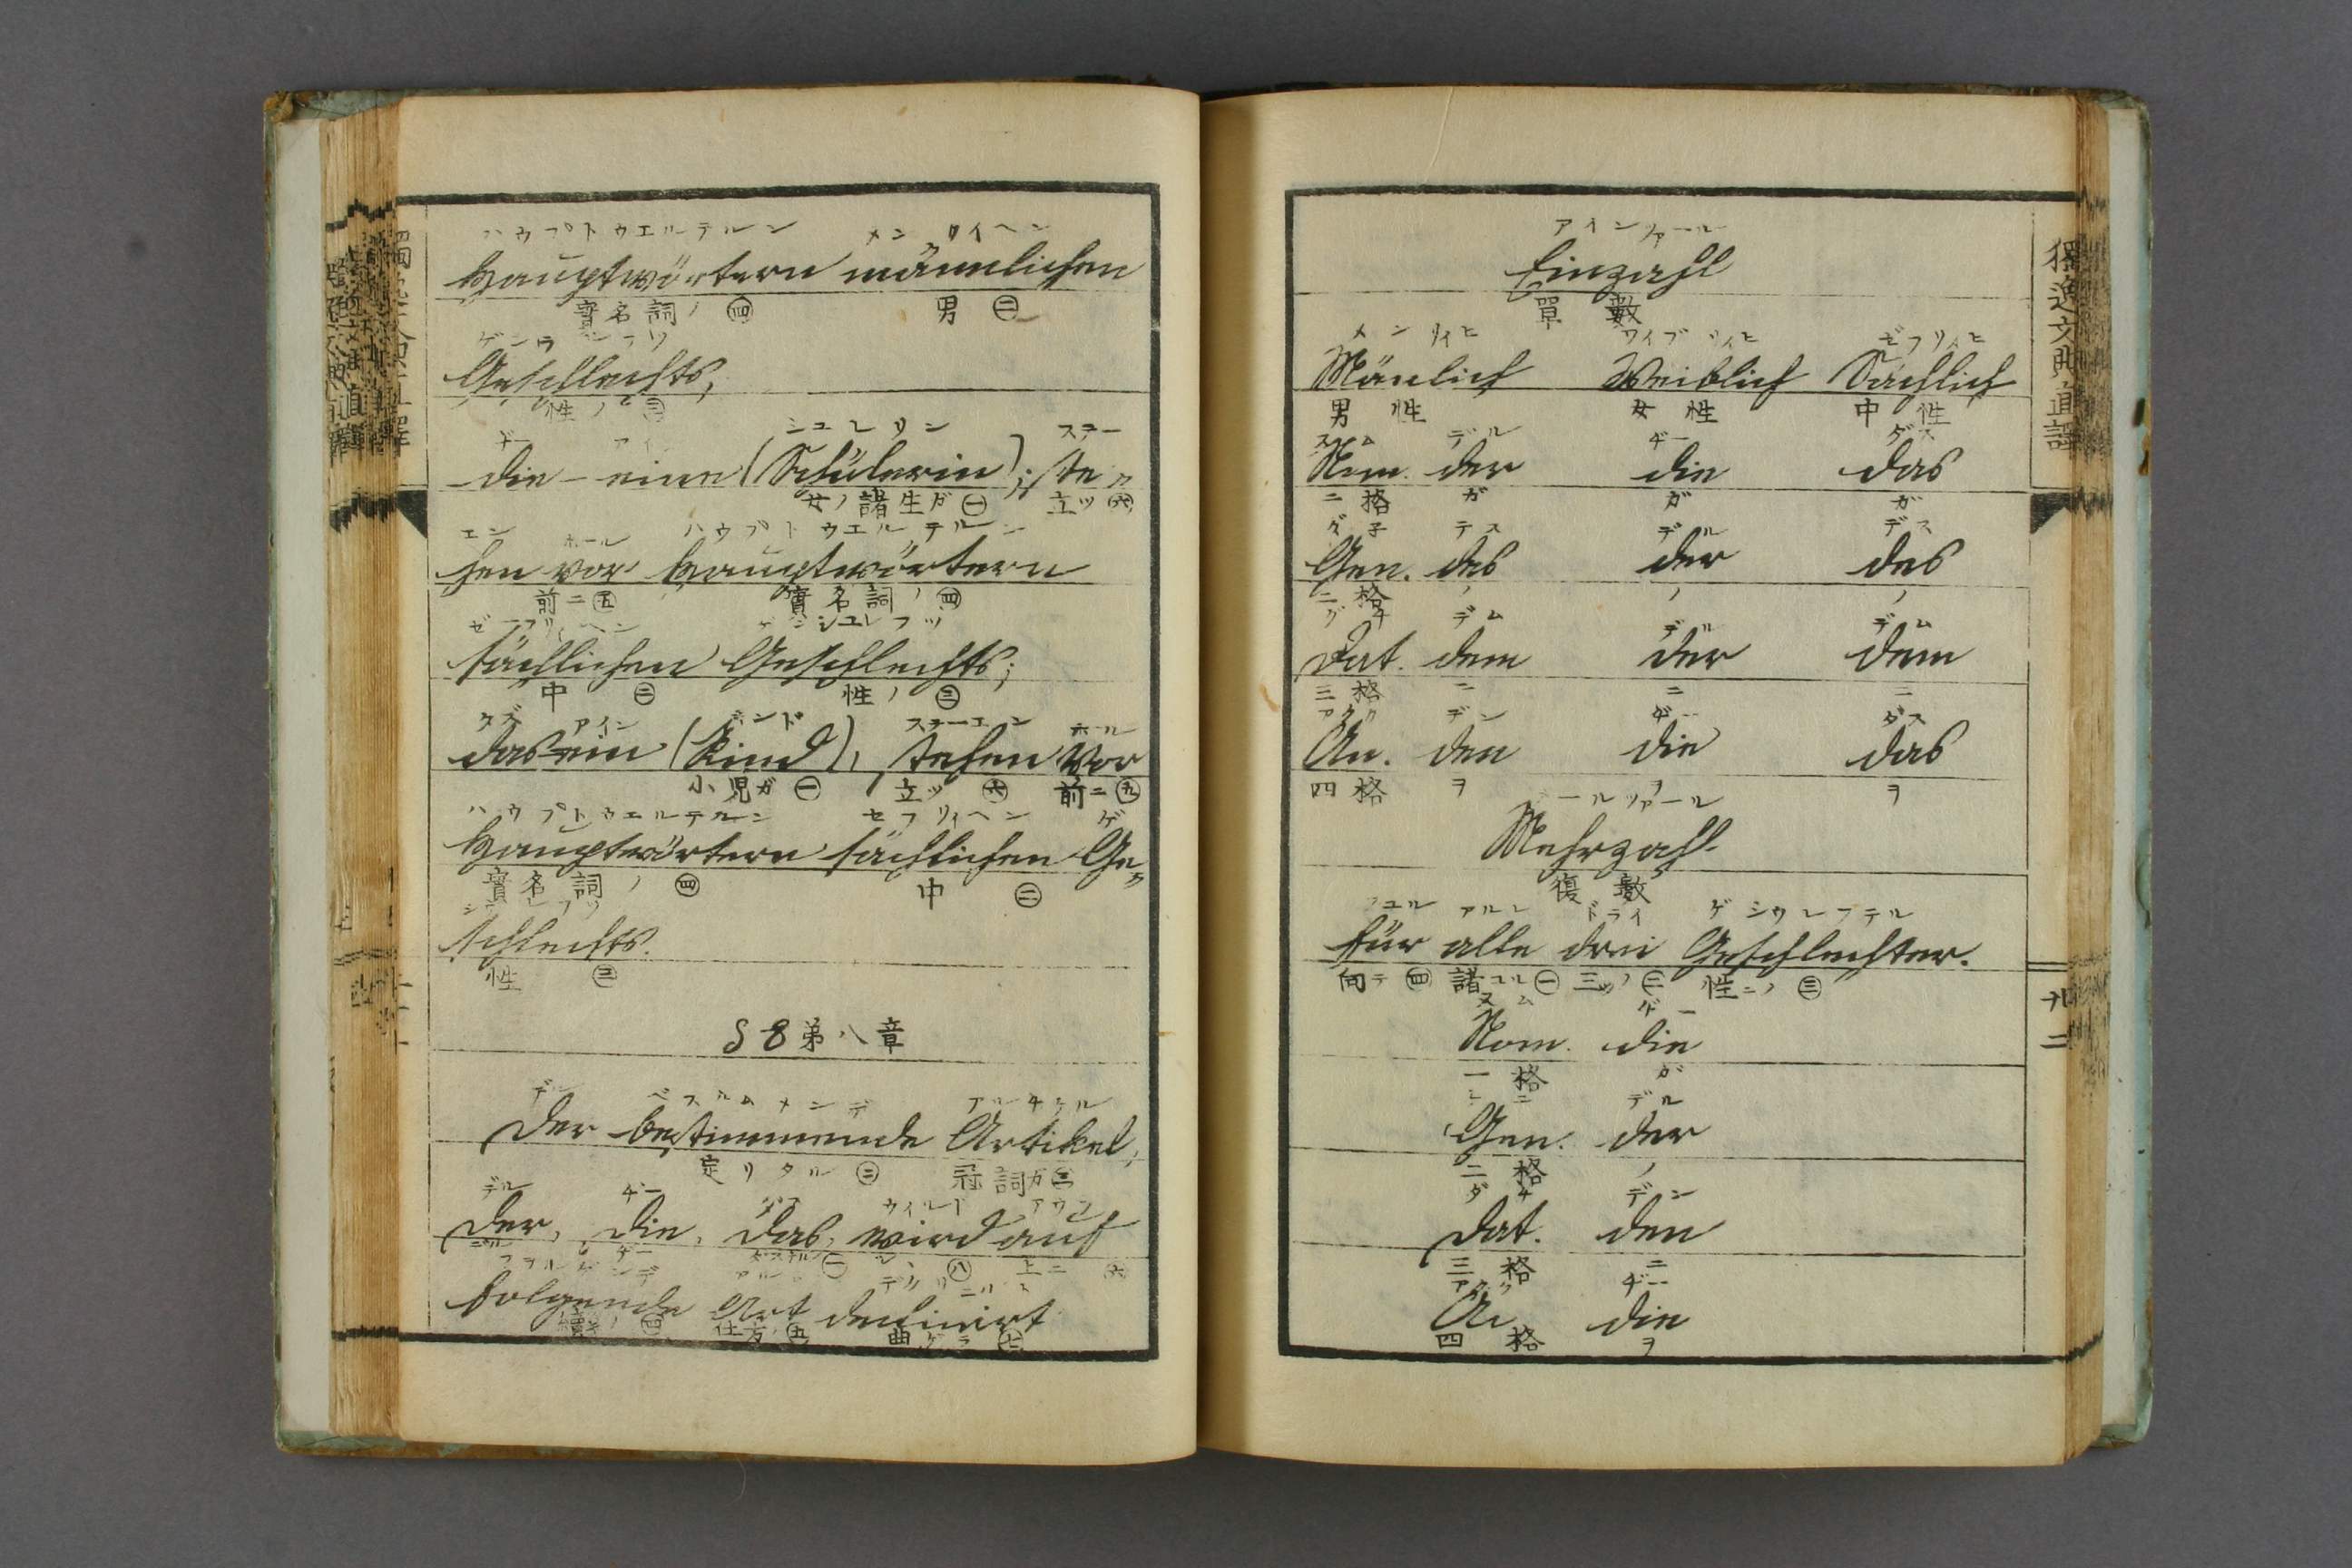 ハウプトウエルテルン メンリイヘン
Hauptwörtern männlichen
實名詞ノ㊃ 男㊁
Geschlechts,
性ノ㊂
シユレリン ステー
die - eine (Schülerin); ste〃
女ノ諸生ガ㊀ 立ツ㊅
エン ホール ハウプトウエルテルン
hen vor Hauptwörtern
前ニ㊄ 實名詞ノ㊃
sächlichen Geschlechts;
中 ㊁ 性ノ㊂
アイン キンド ステーエン ホール
das ein (Kind), stehen vor
小児ガ㊀ 立ツ㊅ 前ニ㊄
ハウプトウエルテルン セフリイヘン ゲ
Hauptwörtern sächlichen Ge〃
實名詞ノ㊃ 中 ㊁
schlechts.
性 ㊂
§8第八章
デル アルチケル
Der bestimmende Artikel,
定リタル㊁ 冠詞ガ㊂
デル ヂー ダス ウイルド アウフ
der, die, das, wird auf
㊀ ㊇ 上ニ ㊅
folgende Art declinirt
仕方ノ㊄ 曲ゲラ㊆
獨逸文典直譯
アインツァール
Einzahl
單數
メンリイヒ ワイブリイヒ ゼフリイヒ
Mänlich Weiblich Sächlich
男性 女性 中性
デル ヂー ダス
Nom. der die das
格 ガ ガ ガ
デス デル デス
Gen. des der des
二格 ノ ノ ノ
デム デル デム
Dat. dem der dem
三格 ニ ニ ニ
デン ヂー ダス
Ac. den die das
四格 ヲ ヲ ヲ
Mehrzahl
復數
フユル アルレ ドライ ゲシウレフテル
für alle drei Geschlechter.
向テ㊃ 諸ユル㊀ 三ツノ㊁ 性ニノ㊂
ヌム ヂー
Nom. die
一格 ガ
デル
Gen. der
二格 ノ
ダチ デン
Dat. den
三格 ニ
ヂー
Ac. die
四格 ヲ
廿二